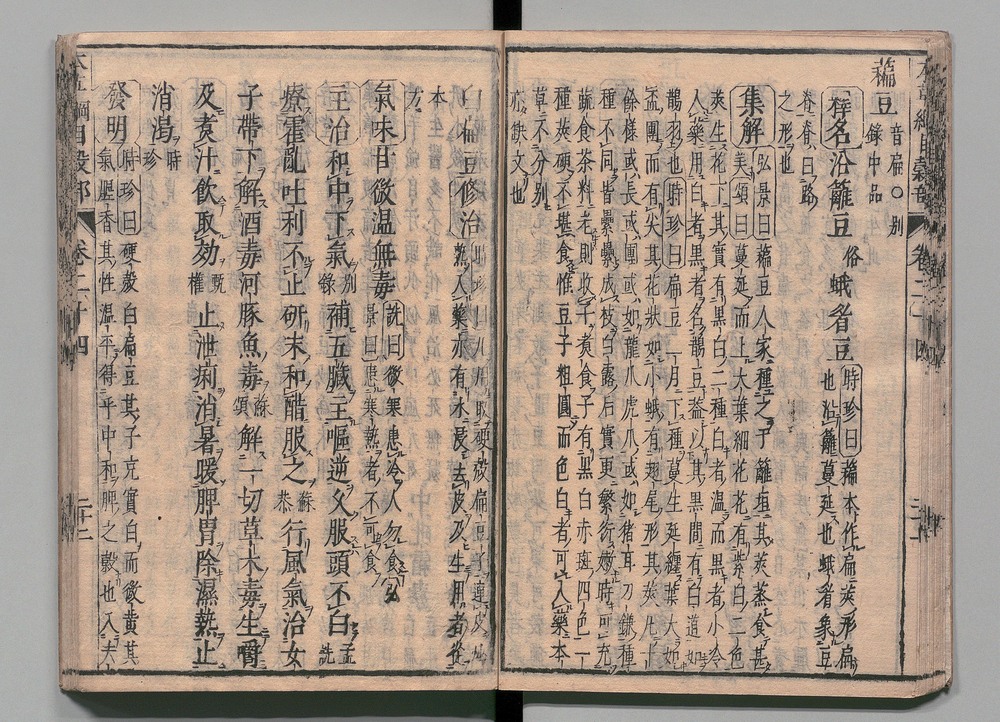 藊豆 音扁○別錄中品
釋名 沿籬豆 俗 蛾眉豆 時珍曰藊本作扁莢形扁也沿籬蔓延也蛾眉象豆
脊白路
之形也
集解 弘景曰藊豆人家種之于籬垣其莢蒸食甚
美頌曰蔓延而上大葉細花花有紫白二色
莢生花下其實有黑白二種白者溫而黑者小冷
入藥用白者黑者名鵲豆蓋以其黑間有白道如
鵲羽也時珍曰扁豆二月下種蔓生延纏葉大如
盃團而有尖其花狀如小蛾有翅尾形其莢凡十
餘樣或長或團或如龍爪虎爪或如猪耳刀鎌種
種不同皆纍纍成枝白露後實更繁衍嫩時可充
蔬食茶料老則收子煮食子有黑白赤斑四色一
種莢硬不堪食惟豆子粗圓而色白者可入藥本
草不分別
亦缺文也
白扁豆修治 時珍曰凡用取硬殼扁豆子連皮炒
熟入藥亦有水浸去皮及生用者從
本
方
氣味甘微溫無毒 詵曰微寒患冷人勿食弘
景曰患寒熱者不可食
主治和中下氣 別錄 補五臟主嘔逆久服頭不白 孟詵
療霍亂吐利不止研末和醋服之 蘇恭 行風氣治女
子帶下解酒毒河豚魚毒 蘇頌 解一切草木毒生嚼
及煮汁飲取効 甄權 止泄痢消暑暖脾胃除濕熱止
消渴 時珍
發明 時珍曰硬殼白扁豆其子充實白而微黄其
氣腥香其性溫平得乎中和脾之穀也入太
卷二十四